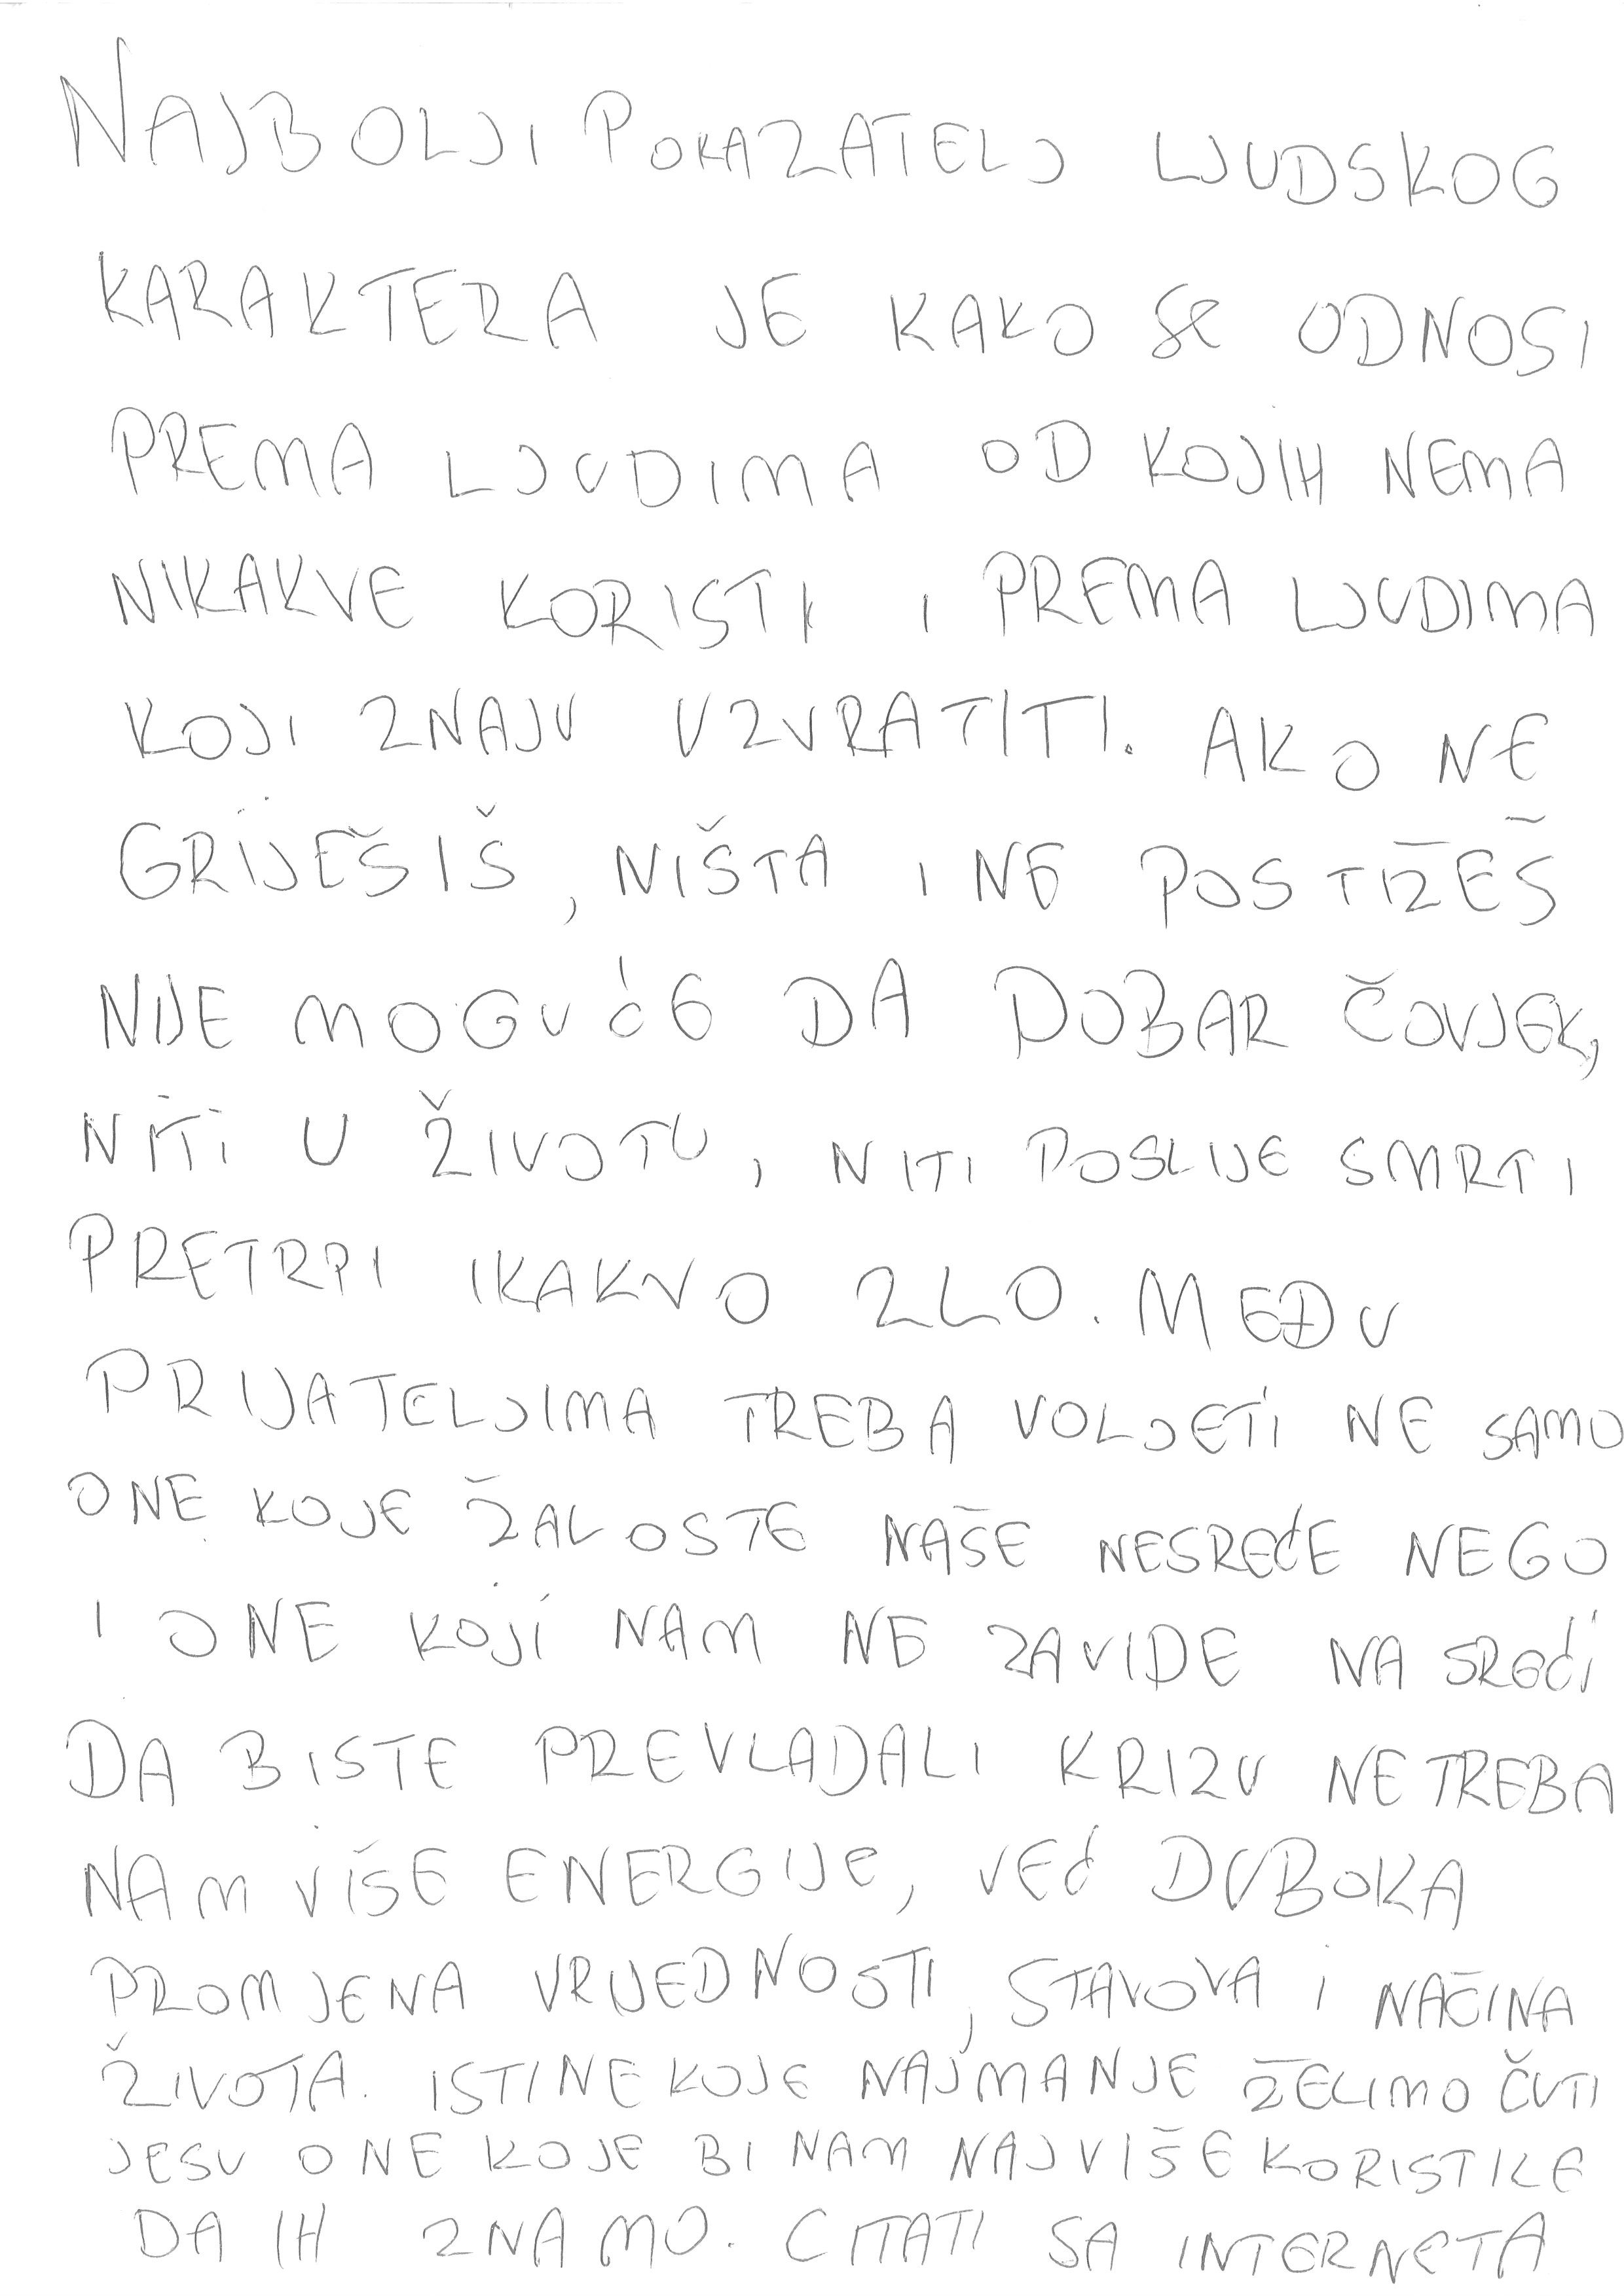 NAJBOLJI POKAZATELJ LJUDSKOG
KARAKTERA JE KAKO SE ODNOSI
PREMA LJUDIMA OD KOJIH NEMA
NIKAKVE KORISTI I PREMA LJUDIMA
KOJI ZNAJU UZVRATITI. AKO NE
GRIJEŠIŠ, NIŠTA I NE POSTIŽEŠ
NIJE MOGUĆE DA DOBAR ČOVJEK,
NITI U ŽIVOTU, NITI POSLIJE SMRTI
PRETRPI IKAKVO ZLO. MEĐU
PRIJATELJIMA TREBA VOLJETI NE SAMO
ONE KOJE ŽALOSTE NAŠE NESREĆE NEGO
I ONE KOJI NAM NE ZAVIDE NA SREĆI
DA BISTE PREVLADALI KRIZU NE TREBA
NAM VIŠE ENERGIJE, VEĆ DUBOKA
PROMJENA VRIJEDNOSTI, STAVOVA I NAČINA
ŽIVOTA. ISTINE KOJE NAJMANJE ŽELIMO ČUTI
JESU ONE KOJE BI NAM NAJVIŠE KORISTILE
DA IH ZNAMO. CITATI SA INTERNETA